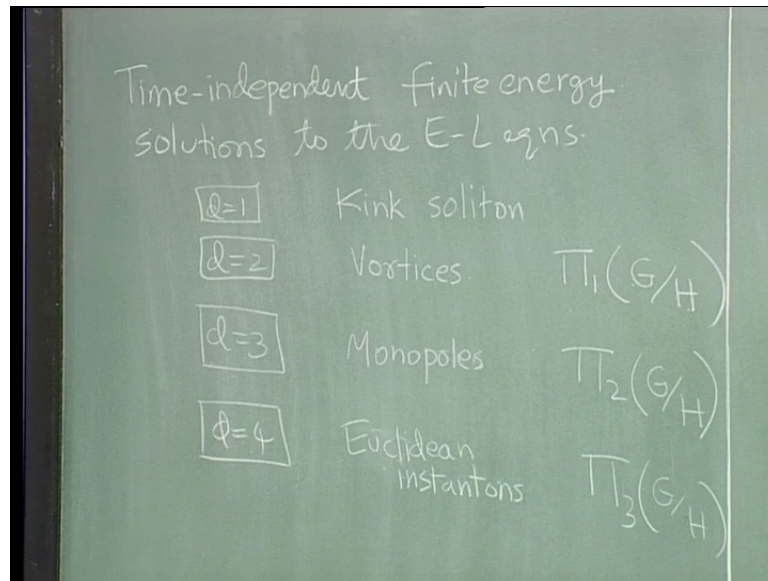 Time-independent finite energy
solutions to the E-L eqns.
d=1 Kink soliton
d=2 Vortices Π₁(G/H)
d=3 Monopoles Π₂(G/H)
d=4 Euclidean
instantons Π₃(G/H)